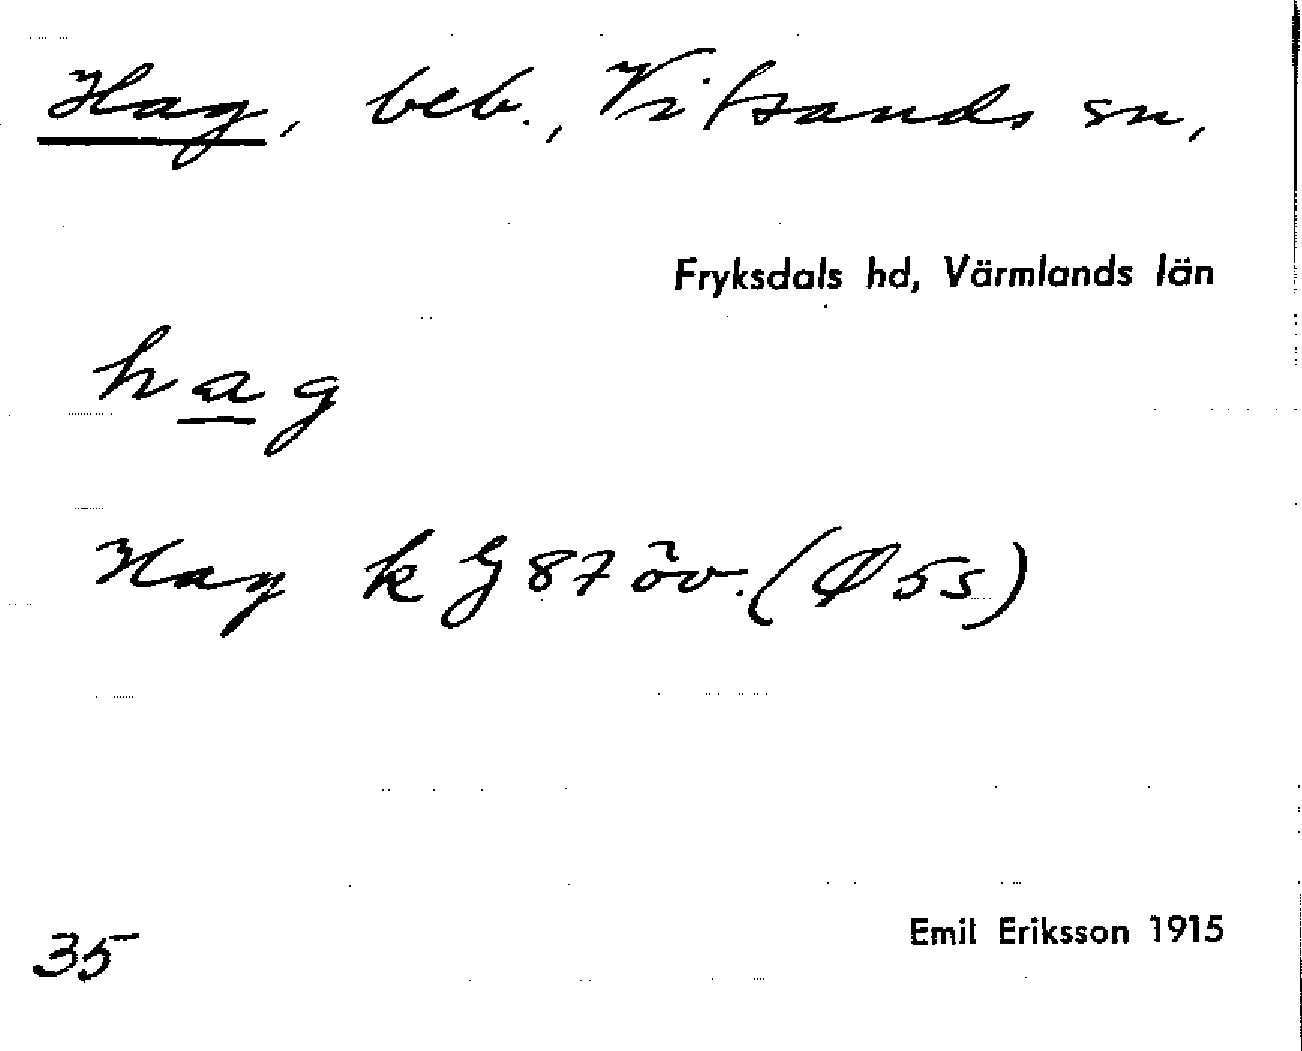 Hag, beb., Vitsands sn,
Fryksdals hd, Värmlands län
hag
Hag k G 87 öv. (Ø 5s)
35
Emil Eriksson 1915